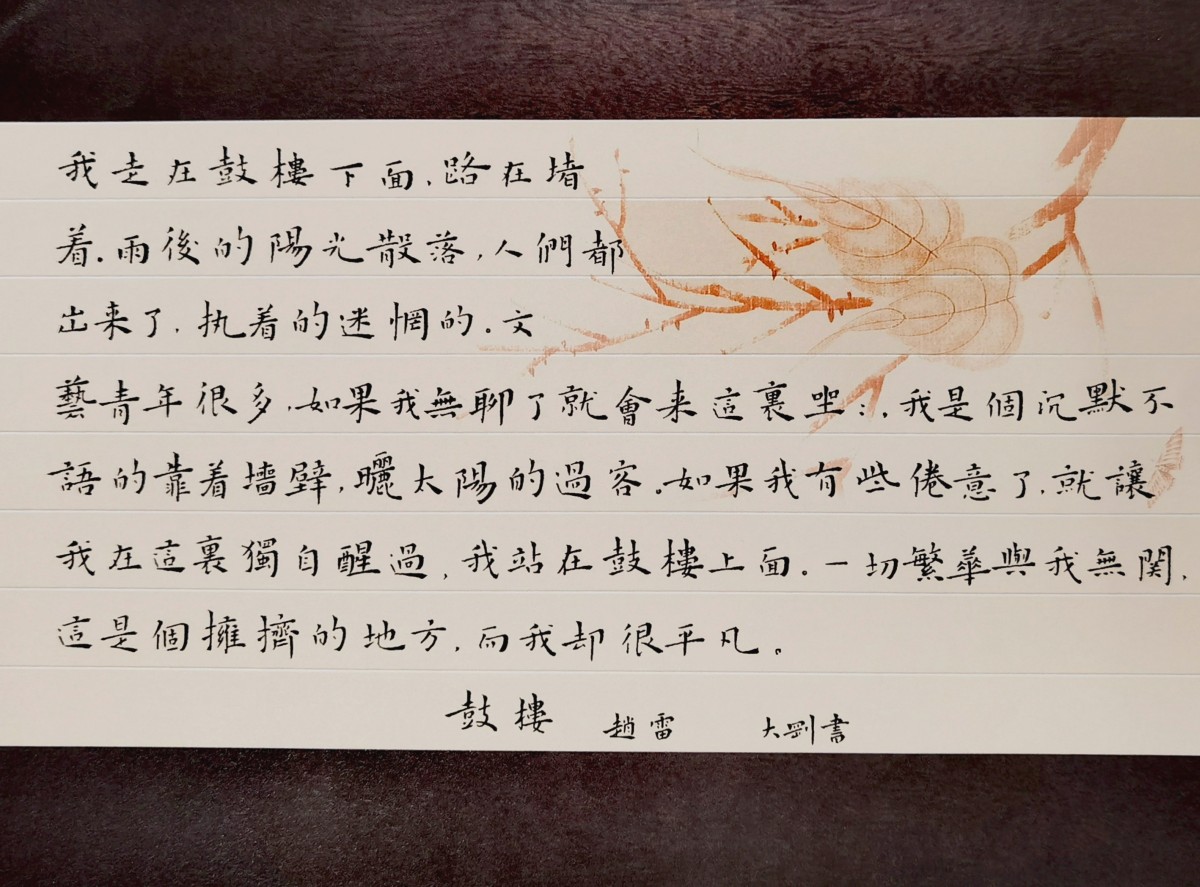 我走在鼓樓下面,路在堵
着.雨後的陽光散落,人們都
出来了.执着的迷惘的.文
藝青年很多.如果我無聊了就會来這裏坐:,我是個沉默不
語的靠着墻壁,曬太陽的過客.如果我有些倦意了.就讓
我在這裏獨自醒過,我站在鼓樓上面.一切繁華與我無関,
這是個擁擠的地方,而我却很平凡。
鼓樓 趙雷 大剛書